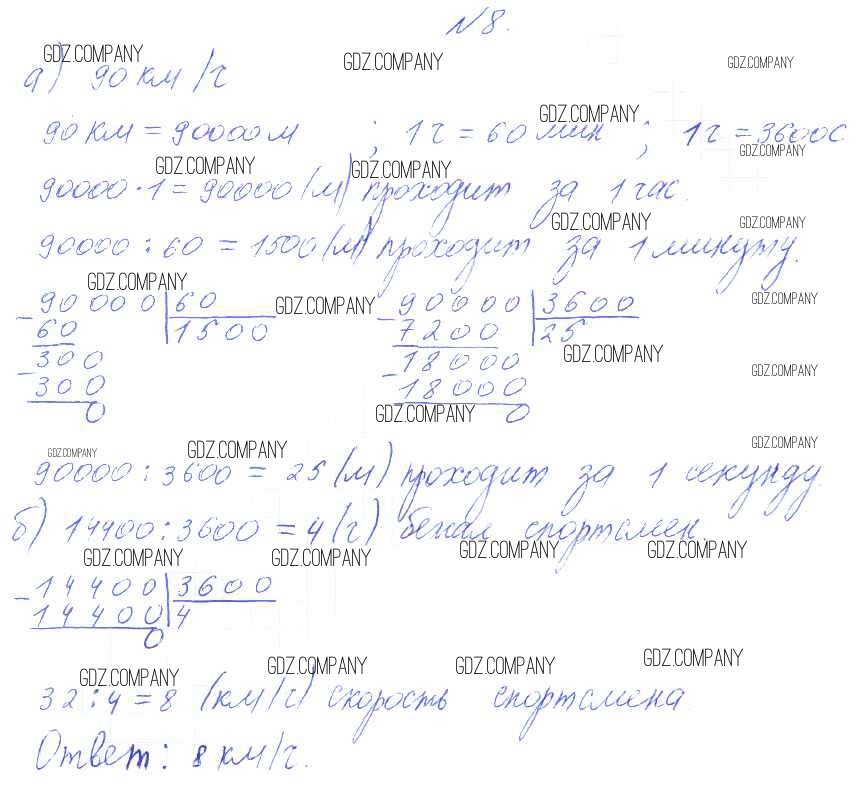 №8.
GDZ.COMPANY GDZ.COMPANY GDZ.COMPANY
а) 90 км/ч
GDZ.COMPANY
90 км = 90000 м ; 1 ч = 60 мин ; 1 ч = 3600 с
GDZ.COMPANY GDZ.COMPANY GDZ.COMPANY
90000 · 1 = 90000 (м) проходит за 1 час.
GDZ.COMPANY GDZ.COMPANY
90000 : 60 = 1500 (м) проходит за 1 минуту.
GDZ.COMPANY GDZ.COMPANY GDZ.COMPANY
- 90000 | 60 - 90000 | 3600
60 | 1500 7200 | 25
GDZ.COMPANY GDZ.COMPANY
- 300 - 18000
300 18000
0 0
GDZ.COMPANY
GDZ.COMPANY GDZ.COMPANY GDZ.COMPANY
90000 : 3600 = 25 (м) проходит за 1 секунду.
б) 14400 : 3600 = 4 (ч) бежал спортсмен.
GDZ.COMPANY GDZ.COMPANY GDZ.COMPANY GDZ.COMPANY
- 14400 | 3600
14400 | 4
0
GDZ.COMPANY GDZ.COMPANY GDZ.COMPANY GDZ.COMPANY
32 : 4 = 8 (км/ч) скорость спортсмена.
Ответ: 8 км/ч.